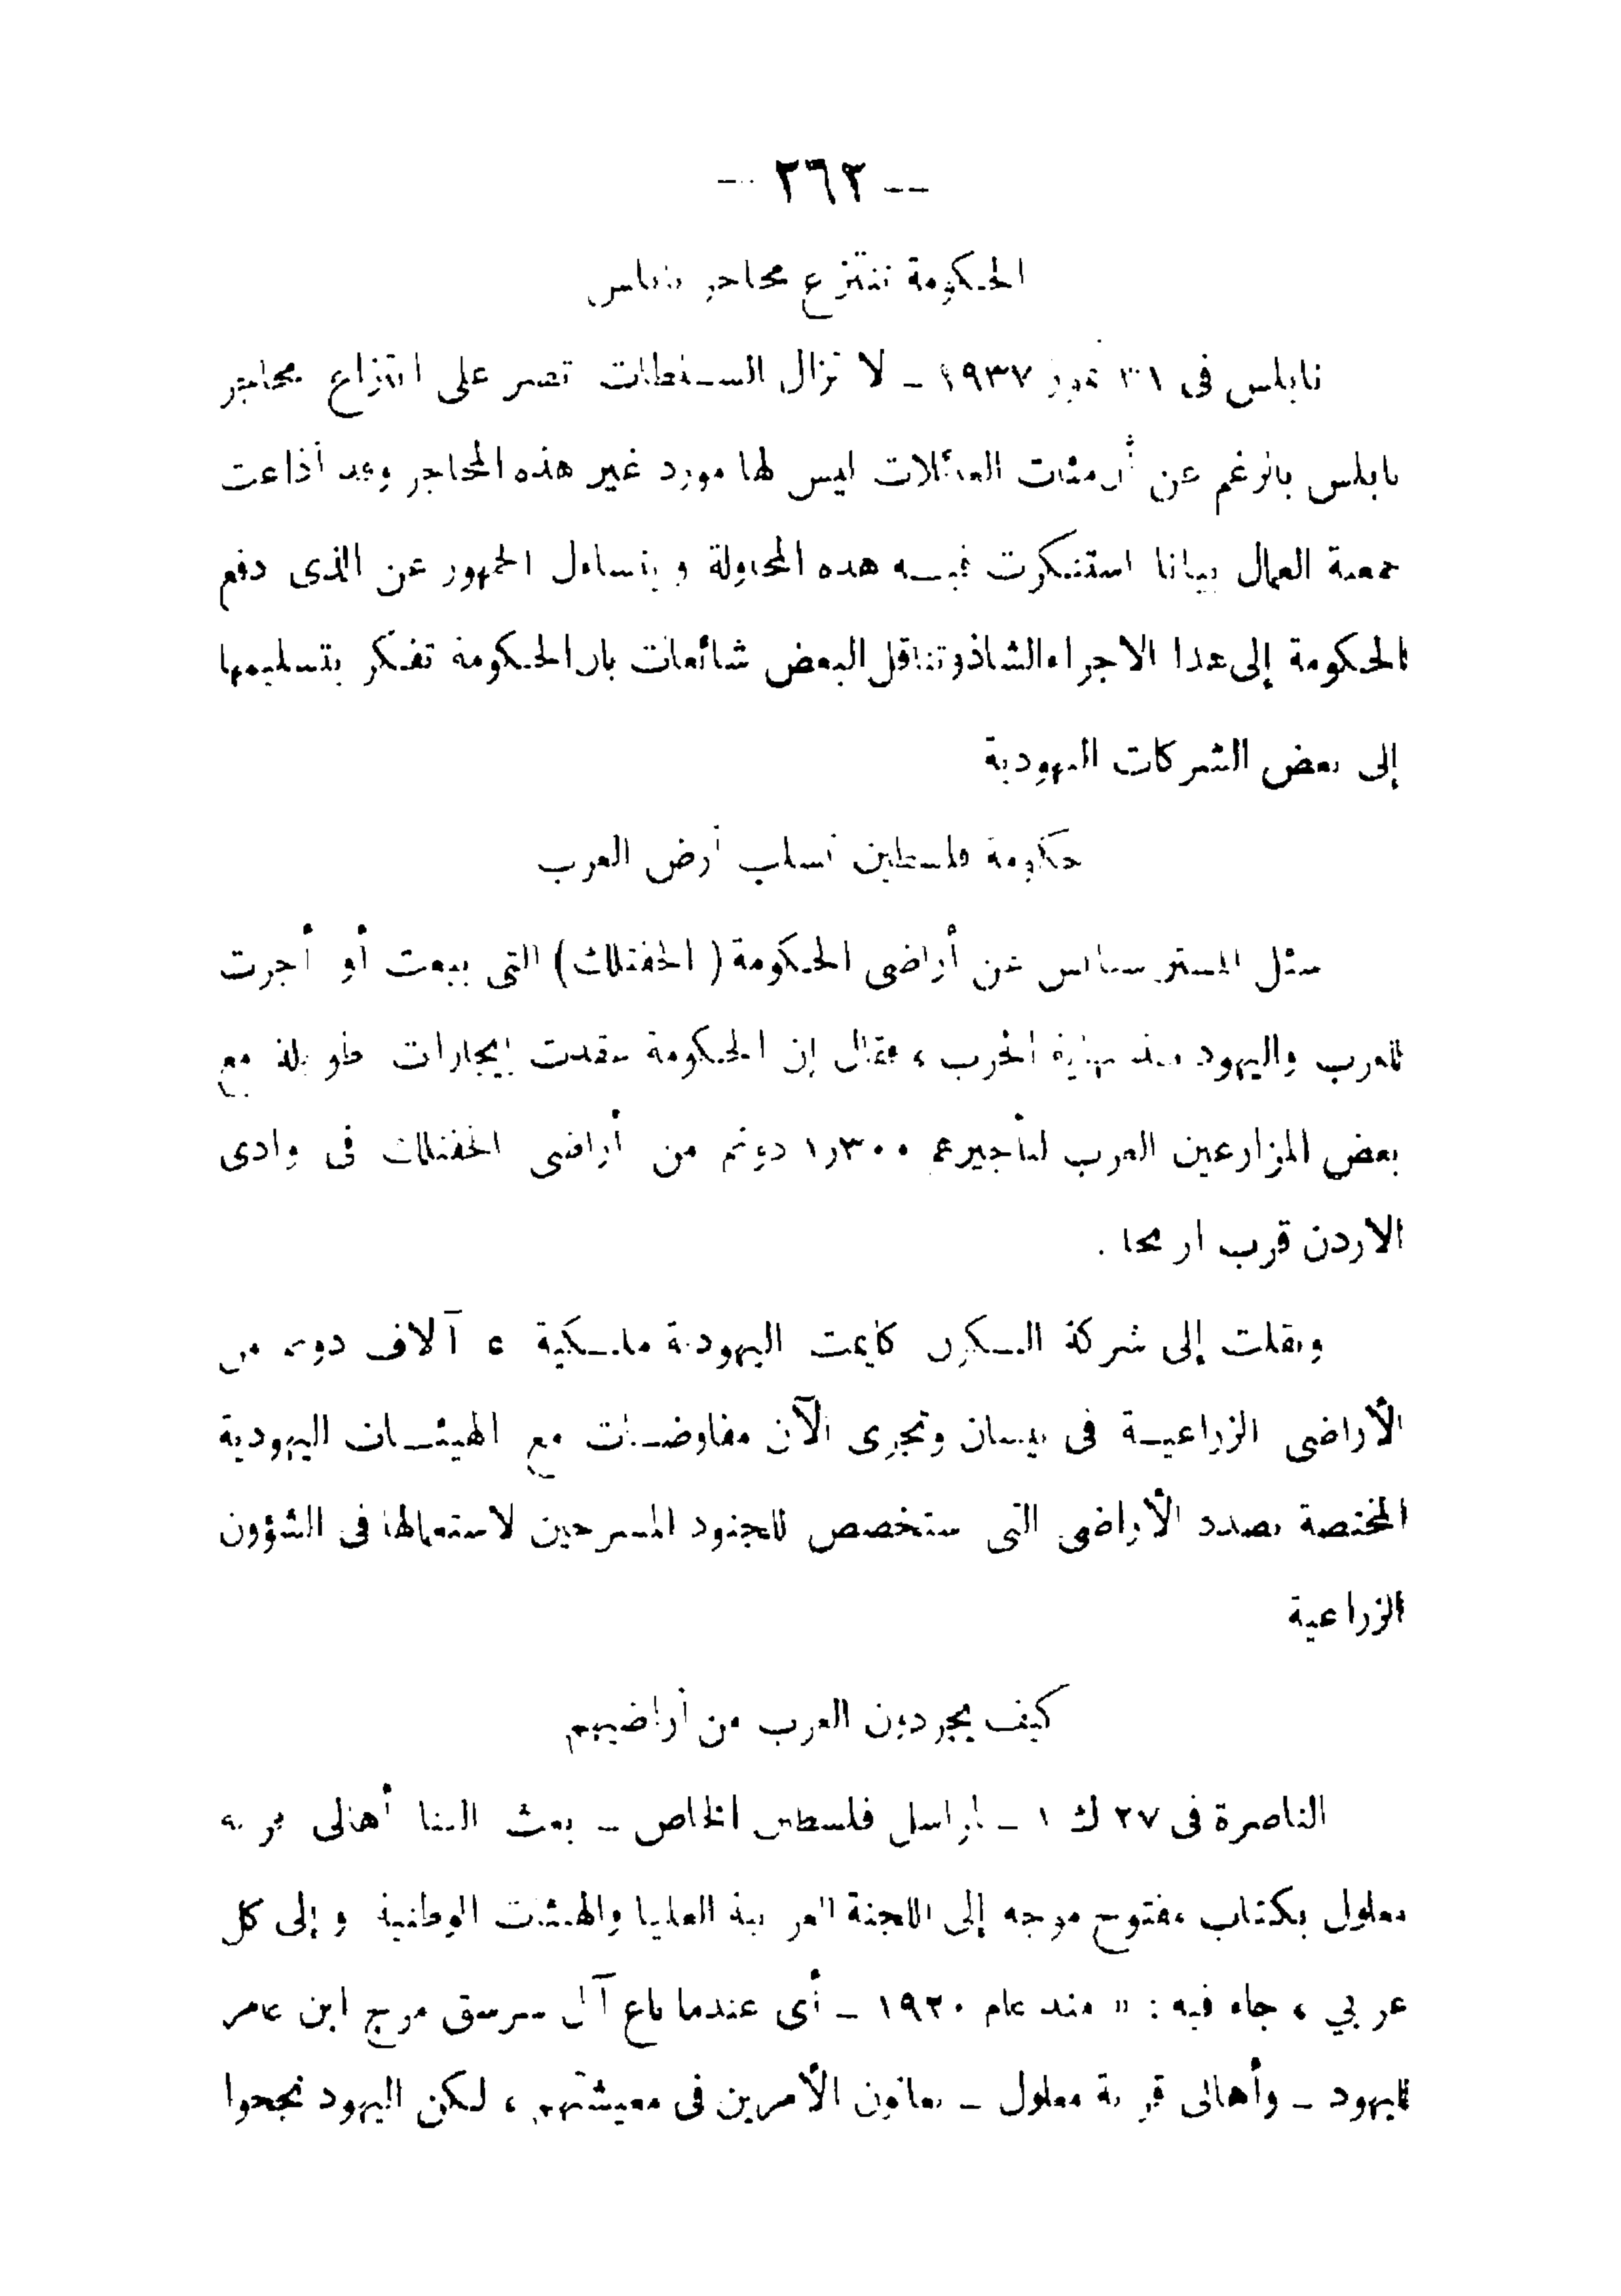 — ٢٦٢ —
الحكومة تنتزع محاجر نابلس
نابلس فى ٣١ تموز ١٩٣٧ – لا تزال السلطات تصر على انتزاع محاجر
نابلس بالرغم عن أن مئات العائلات ليس لها مورد غير هذه المحاجر وقد أذاعت
جمعية العمال بيانا استنكرت فيه هذه المحاولة ويتساءل الجمهور عن الذى دفع
الحكومة إلى هذا الاجراء الشاذ وتناقل البعض شائعات بان الحكومة تفكر بتسليمها
إلى بعض الشركات اليهودية
حكومة فلسطين تسلب أرض العرب
سئل المستر ستانلى عن أراضى الحكومة ( الجفتلك ) التى بيعت أو أجرت
للعرب واليهود منذ نهاية الحرب ، فقال إن الحكومة عقدت إيجارات طويلة مع
بعض المزارعين العرب لتأجيرهم ١٫٣٠٠ دونم من أراضى الجفتلك فى وادى
الاردن قرب اريحا .
ونقلت إلى شركة السكرن كايمت اليهودية ملكية ٤ آلاف دونم من
الأراضى الزراعية فى بيسان وتجرى الآن مفاوضات مع الهيئات اليهودية
المختصة بصدد الأراضى التى ستخصص للجنود المسرحين لاستعمالها فى الشؤون
الزراعية
كيف يجردون العرب من أراضيهم
الناصرة فى ٢٧ ك ١ – لمراسل فلسطين الخاص – بعث الينا أهالى قرية
معلول بكتاب مفتوح موجه إلى اللجنة العربية العليا والهيئات الوطنية وإلى كل
عربي ، جاء فيه : « منذ عام ١٩٢٠ – أى عندما باع آل سرسق مرج ابن عامر
لليهود – وأهالى قرية معلول – يعانون الأمرين فى معيشتهم ، لكن اليهود نجحوا